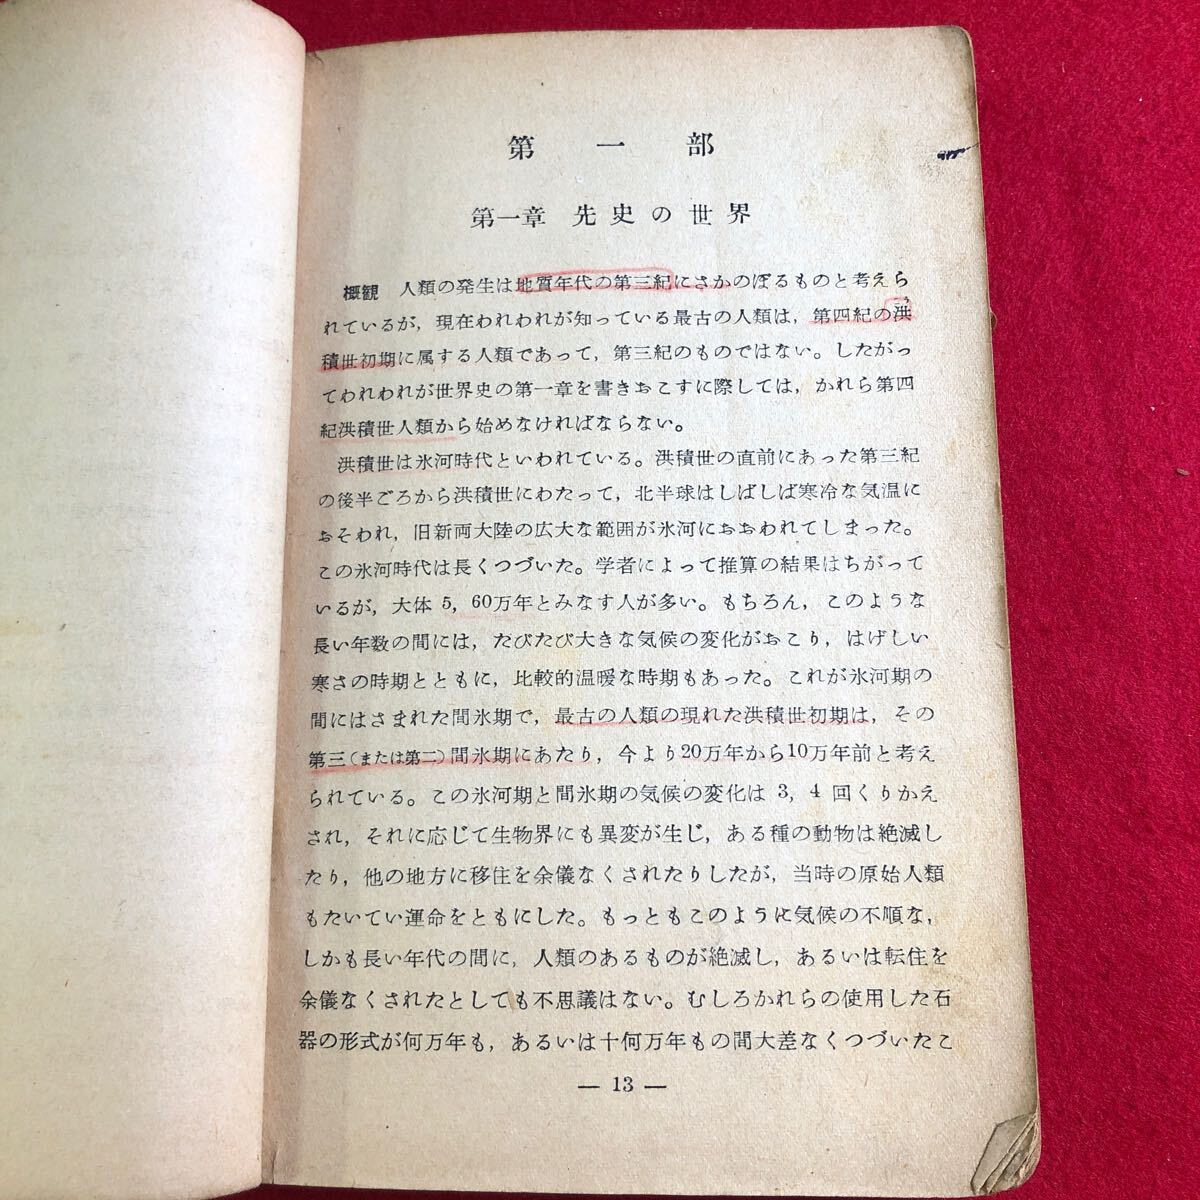 第一部
第一章 先史の世界
概観 人類の発生は地質年代の第三紀にさかのぼるものと考えら
れているが，現在われわれが知っている最古の人類は，第四紀の洪
積世初期に属する人類であって，第三紀のものではない。したがっ
てわれわれが世界史の第一章を書きおこすに際しては，かれら第四
紀洪積世人類から始めなければならない。
洪積世は氷河時代といわれている。洪積世の直前にあった第三紀
の後半ごろから洪積世にわたって，北半球はしばしば寒冷な気温に
おそわれ，旧新両大陸の広大な範囲が氷河におおわれてしまった。
この氷河時代は長くつづいた。学者によって推算の結果はちがって
いるが，大体 5，60万年とみなす人が多い。もちろん，このような
長い年数の間には，たびたび大きな気候の変化がおこり，はげしい
寒さの時期とともに，比較的温暖な時期もあった。これが氷河期の
間にはさまれた間氷期で，最古の人類の現れた洪積世初期は，その
第三（または第二）間氷期にあたり，今より20万年から10万年前と考え
られている。この氷河期と間氷期の気候の変化は 3，4 回くりかえ
され，それに応じて生物界にも異変が生じ，ある種の動物は絶滅し
たり，他の地方に移住を余儀なくされたりしたが，当時の原始人類
もたいてい運命をともにした。もっともこのように気候の不順な，
しかも長い年代の間に，人類のあるものが絶滅し，あるいは転住を
余儀なくされたとしても不思議はない。むしろかれらの使用した石
器の形式が何万年も，あるいは十何万年もの間大差なくつづいたこ
— 13 —